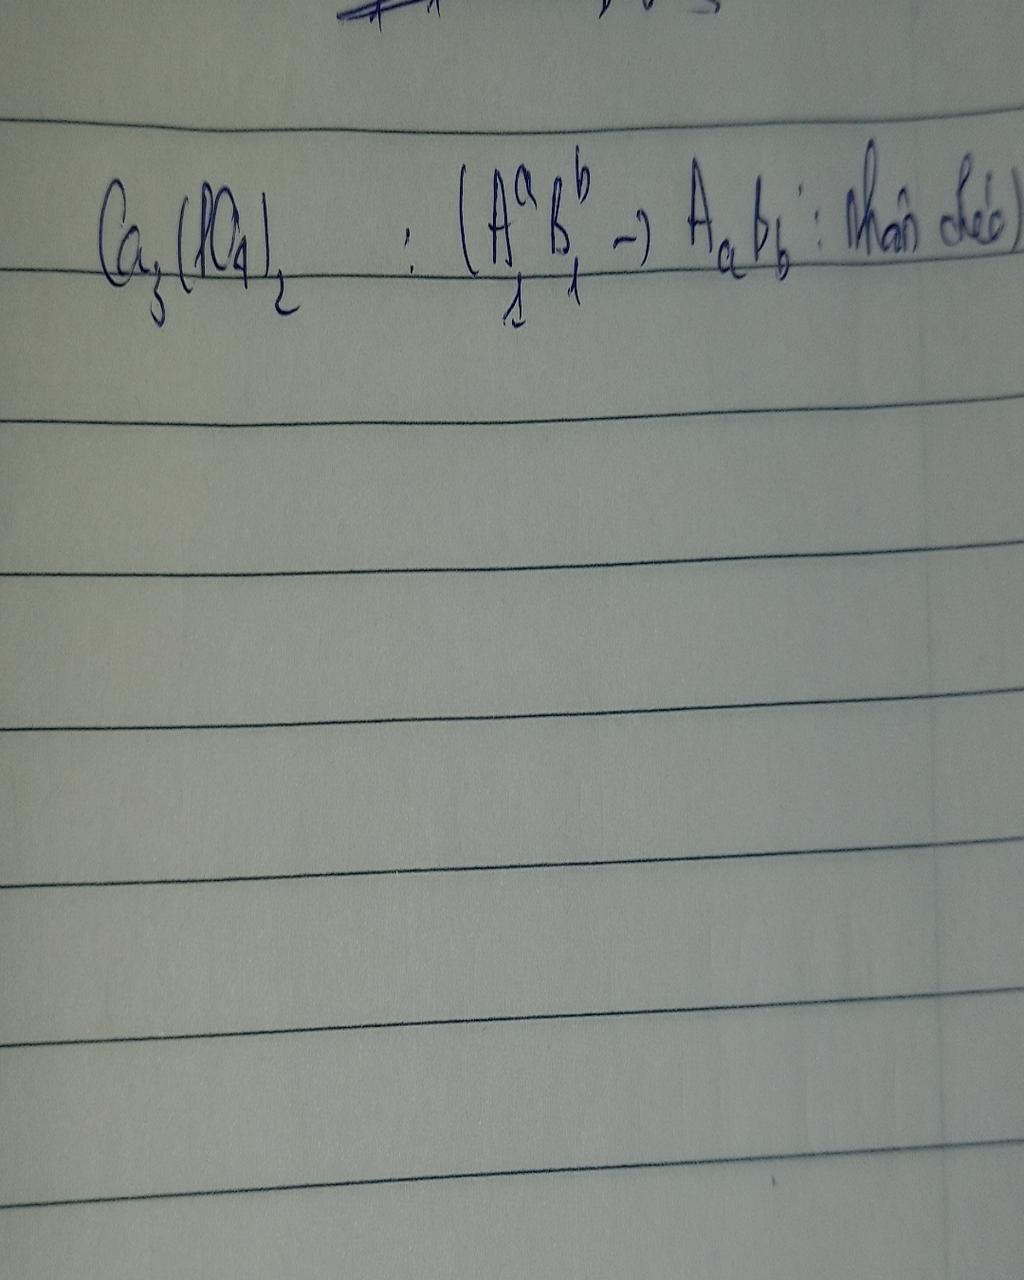 Ca₃(PO₄)₂ : (AᵃB₁ᵇ₁ → Aₐb_b : nhân chéo)